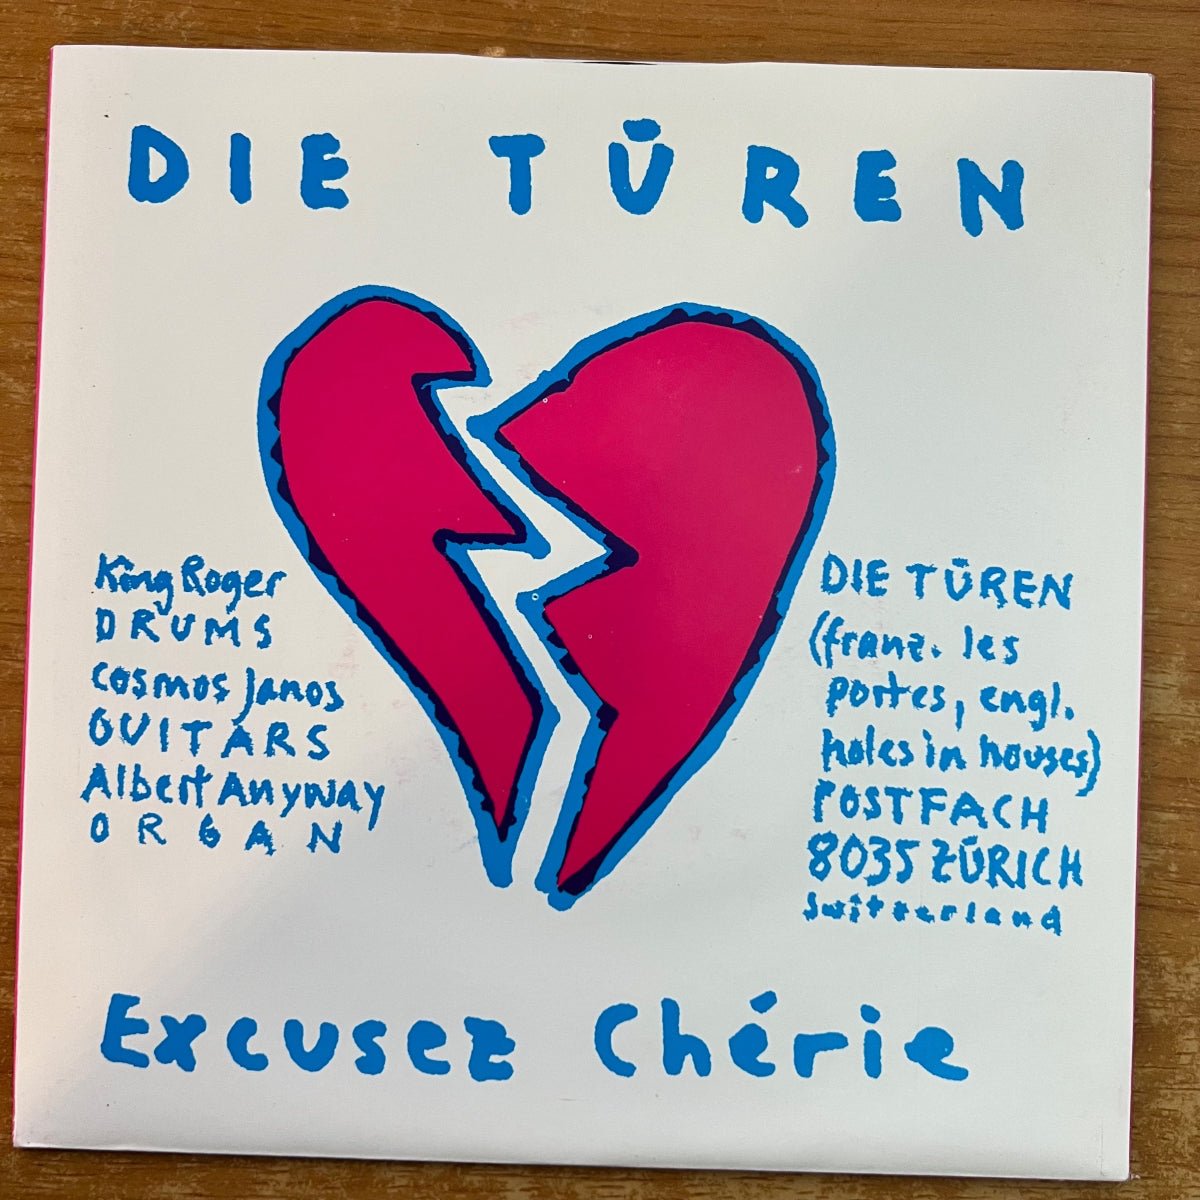 DIE TÜREN
King Roger
DRUMS
Cosmos Janos
GUITARS
Albert Anyway
ORGAN
DIE TÜREN
(franz. les
portes, engl.
holes in houses)
POSTFACH
8035 ZÜRICH
Switzerland
Excusez Chérie